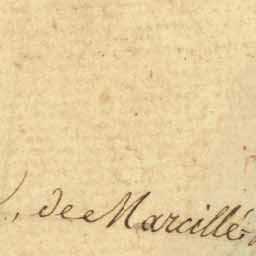 , de Marcillé